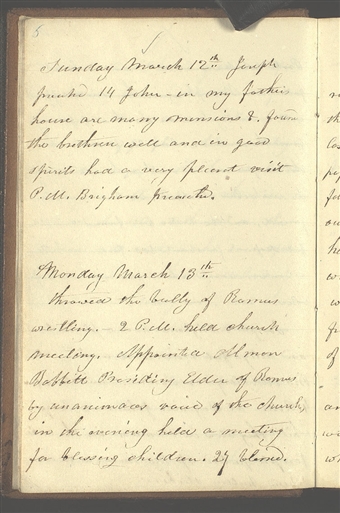 6
Sunday March 12th Joseph
preached 14 John - in my father's
house are many mansions &. found
the brethren well and in good
spirits had a very pleasent visit
P.M. Brigham preachd.
Monday March 13th
throwed the bully of Ramus
wrestling. - 2 P.M. held church
meeting. Appointed Almon
Babbitt Presiding Elder of Ramus
by unanimous voice of the church,
in the evening held a meeting
for blessing children. 27 blessd.